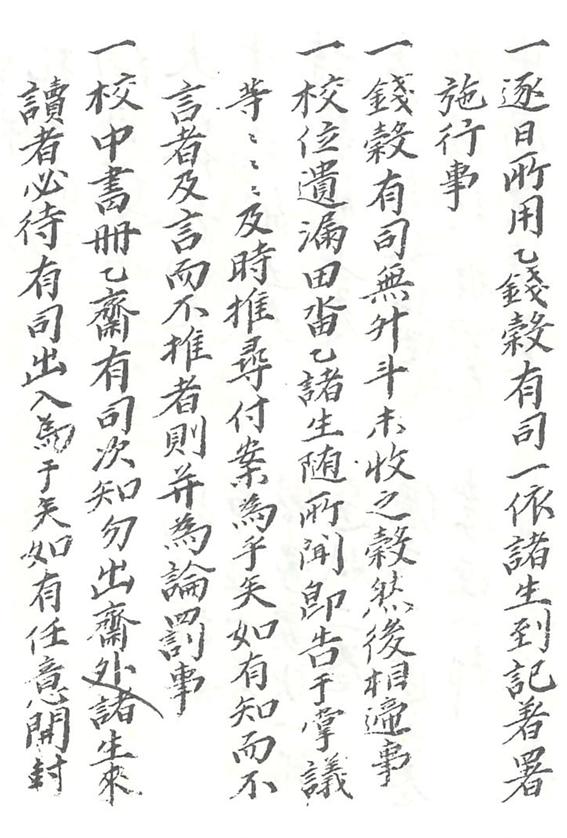 一逐日所用乙錢穀有司一依諸生到記著署
施行事
一錢穀有司無升斗未收之穀然後相遞事
一校位遺漏田畓乙諸生随所聞即告于掌議
等ミミミ及時推尋付案為乎矣如有知而不
言者及言而不推者則并為論罰事
一校中書冊乙齋有司次知勿出齋外諸生來
讀者必待有司出入為乎矣如有任意開封